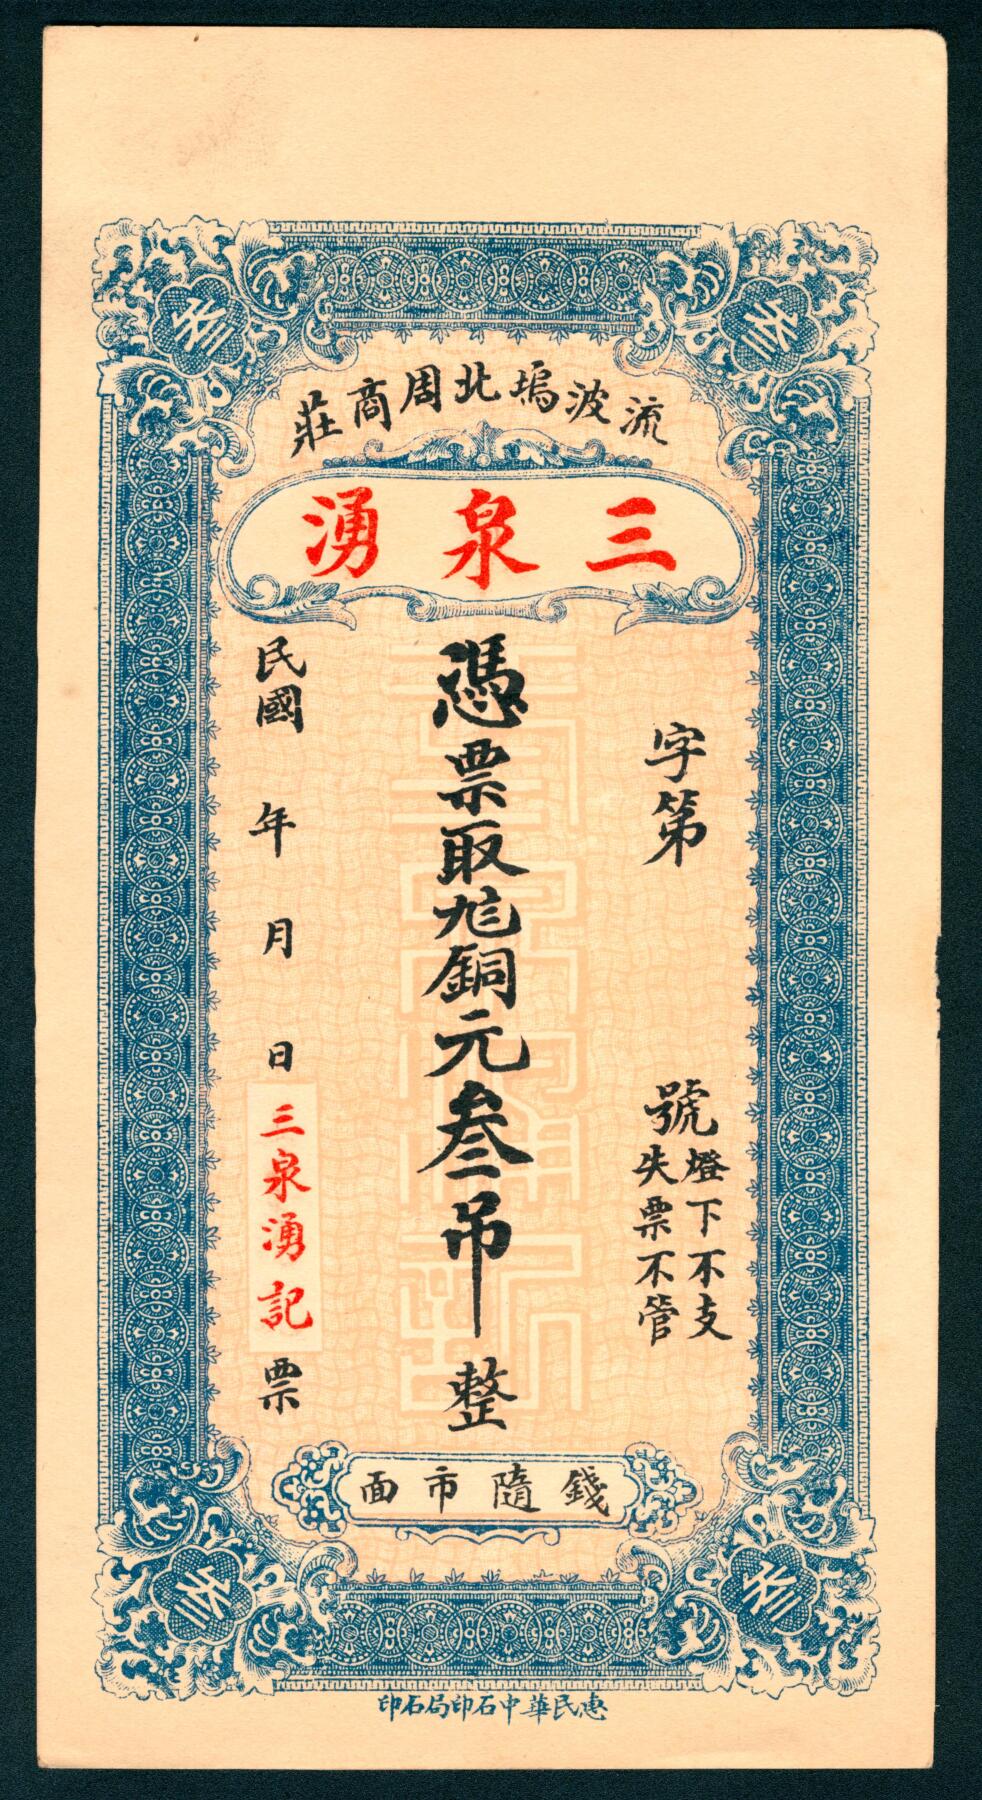 叁
叁
流波塢北周商莊
三泉湧
字第 號
燈下不支
失票不管
憑票取銅元叁吊整
民國 年 月 日三泉湧記票
錢隨市面
叁
叁
惠民華中石印局石印